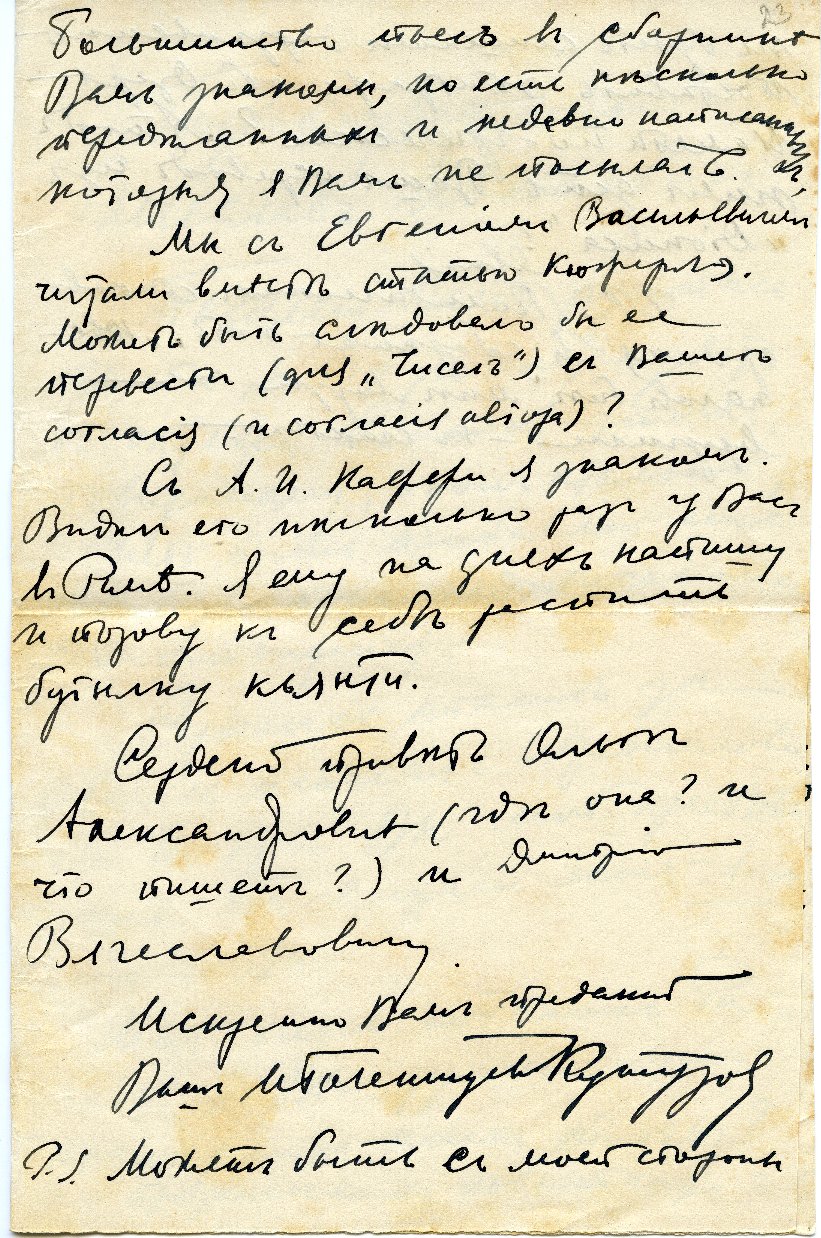 23
Большинство пьесъ въ сборникѣ
Вамъ знакомы, но есть нѣсколько
передѣланныхъ и недавно написанныхъ,
которыя я Вамъ не посылалъ.
Мы съ Евгеніемъ Васильевичем
читали вмѣстѣ статью Кюфферлэ.
Можетъ быть слѣдовало бы ее
перевести (для „Чиселъ“) съ Вашего
согласія (и согласія автора)?
Съ А. И. Каффи я знакомъ.
Видѣлъ его нѣсколько разъ у Васъ
въ Римѣ. Я ему на дняхъ напишу
и позову къ себѣ распить
бутылку кьянти.
Сердечный привѣтъ Ольгѣ
Александровнѣ (гдѣ она? и
что пишетъ?) и Дмитрію
Вячеславовичу.
Искренно Вамъ преданный
Вашъ ИГоленищевъ Кутузовъ
P.S. Можетъ быть съ моей стороны